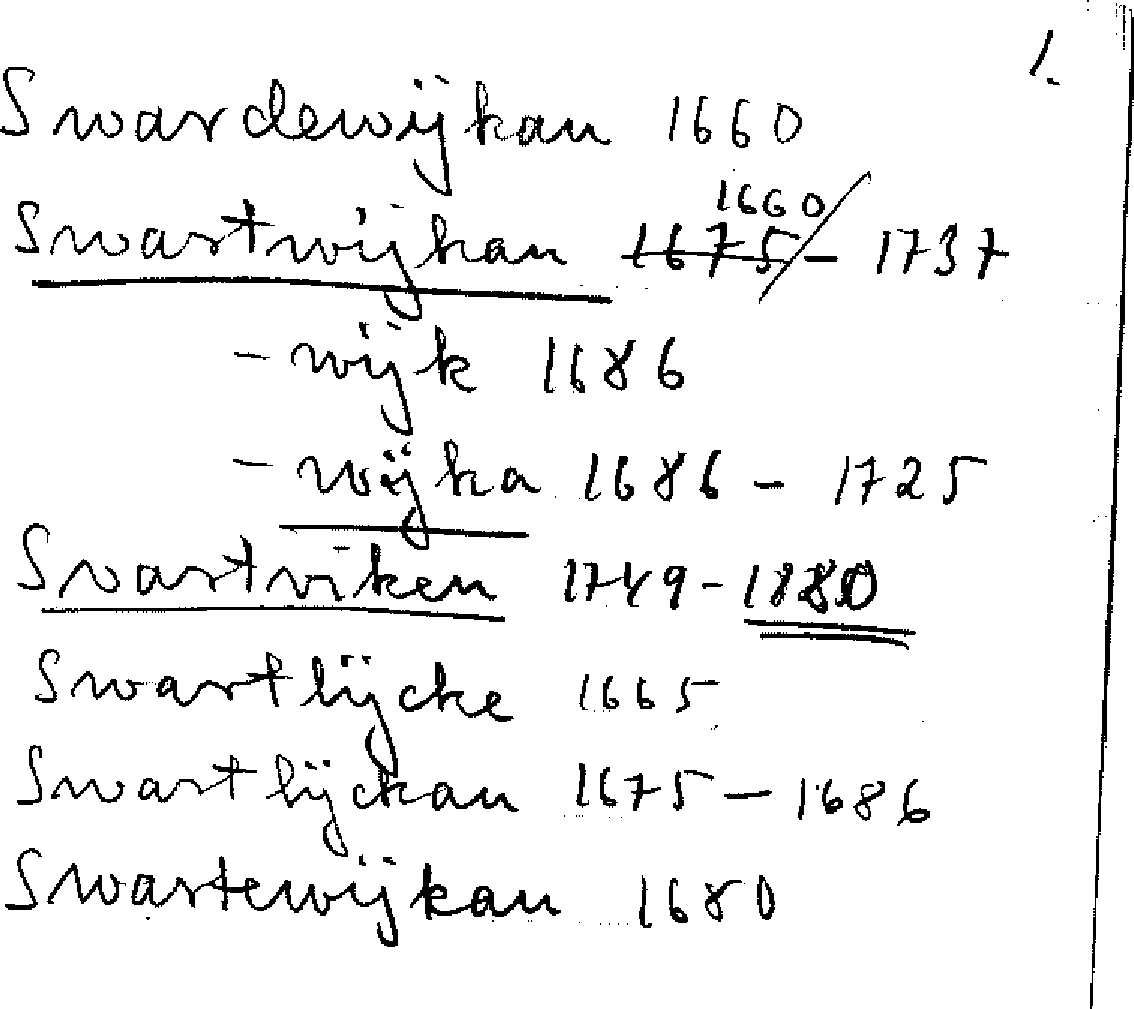 1.
Swardewijkan 1660
Swartwijkan 1675 1660 - 1737
- wijk 1686
- wijka 1686 - 1725
Svartviken 1749 - 1880
Swartlijcke 1665
Swartlijckan 1675 - 1686
Swartewijkan 1680